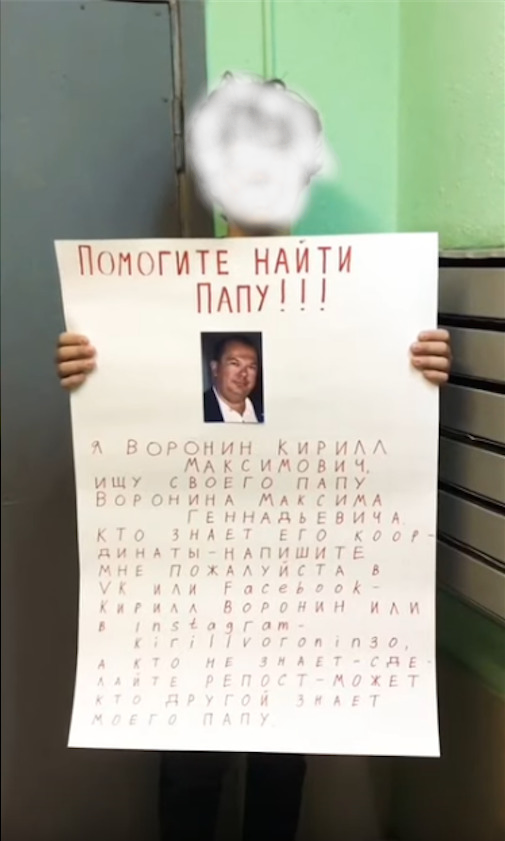 ПОМОГИТЕ НАЙТИ
ПАПУ!!!
Я ВОРОНИН КИРИЛЛ
МАКСИМОВИЧ,
ИЩУ СВОЕГО ПАПУ
ВОРОНИНА МАКСИМА
ГЕННАДЬЕВИЧА.
КТО ЗНАЕТ ЕГО КООР-
ДИНАТЫ-НАПИШИТЕ
МНЕ ПОЖАЛУЙСТА В
VK ИЛИ Facebook-
КИРИЛЛ ВОРОНИН ИЛИ
В Instagram-
Kirillvoronin30,
А КТО НЕ ЗНАЕТ-СДЕ-
ЛАЙТЕ РЕПОСТ-МОЖЕТ
КТО ДРУГОЙ ЗНАЕТ
МОЕГО ПАПУ.